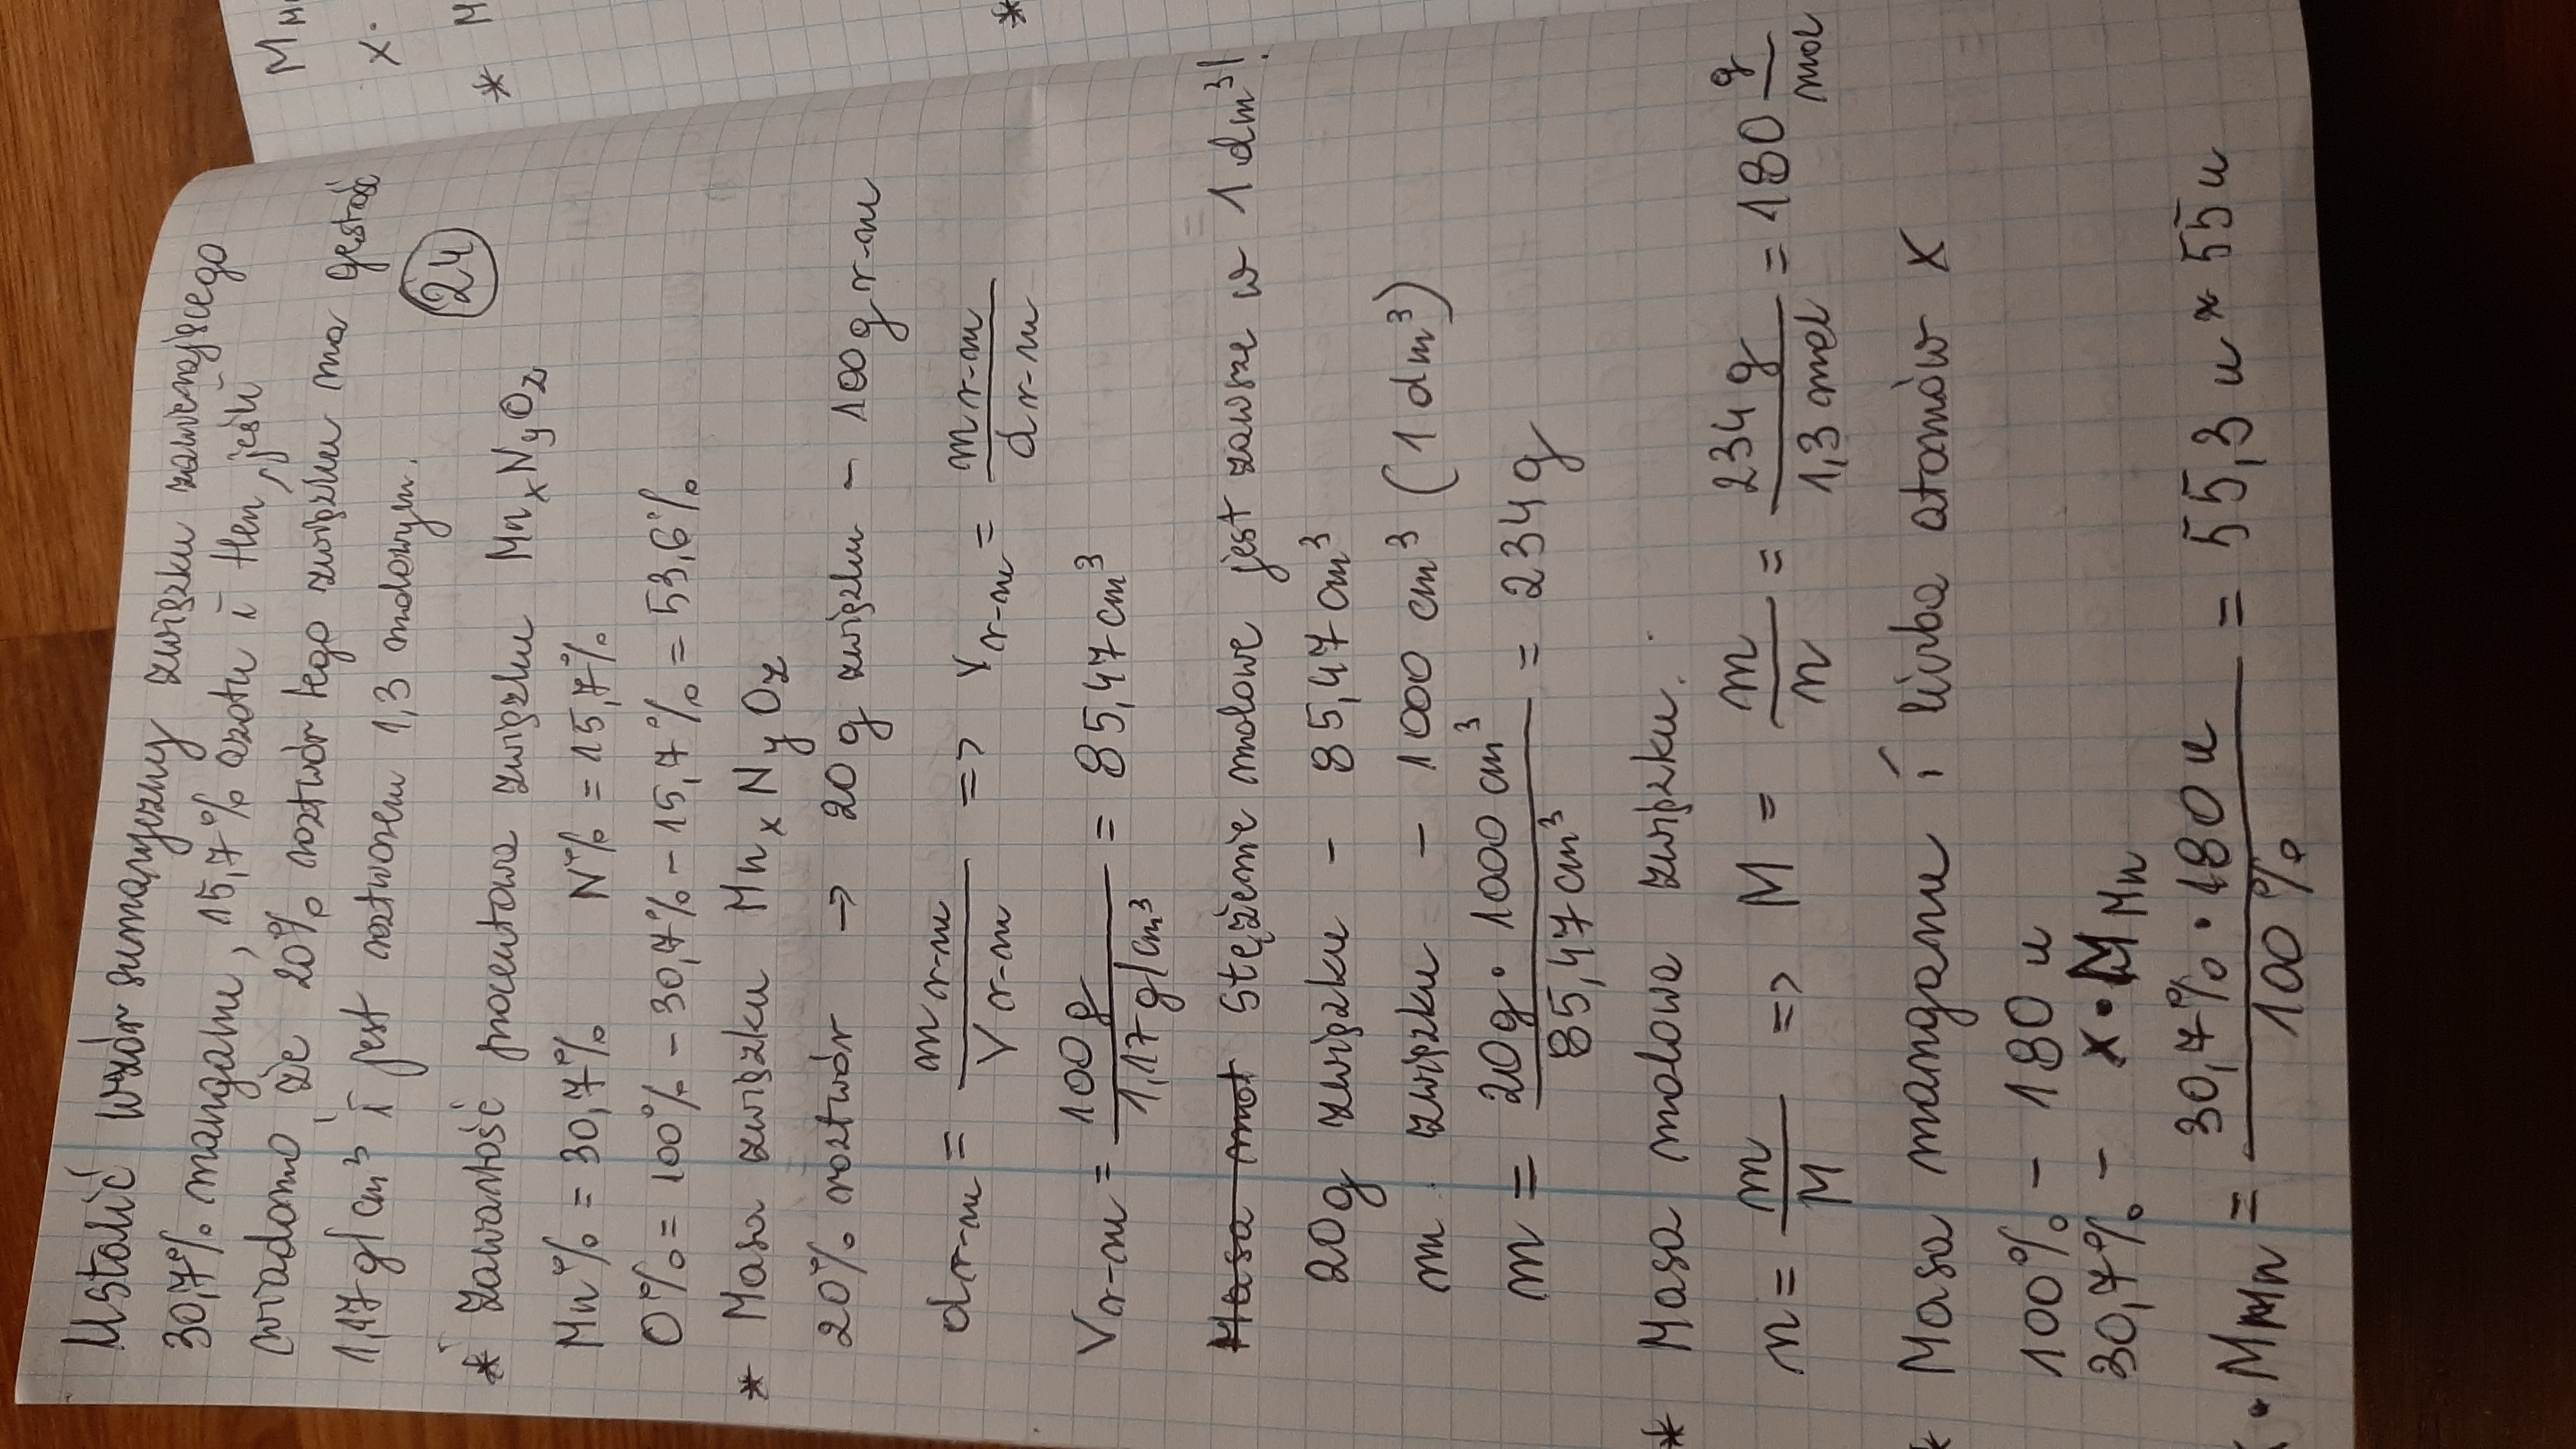 Ustalić wzór sumaryczny związku zawierającego
30,7% manganu, 15,7% azotu i tlen, jeśli
wiadomo, że 20% roztwór tego związku ma gęstość
1,17 g/cm³ i jest roztworem 1,3 molowym.
24
* Zawartość procentowa związku MnₓNᵧO_z
Mn% = 30,7% N% = 15,7%
O% = 100% - 30,7% - 15,7% = 53,6%
* Masa związku MnₓNᵧO_z
20% roztwór → 20 g związku - 100 g r-ru
d r-ru = m r-ru / V r-ru => V r-ru = m r-ru / d r-ru
V r-ru = 100 g / 1,17 g/cm³ = 85,47 cm³
Masa mol Stężenie molowe jest zawsze w 1 dm³!
20g związku - 85,47 cm³
m związku - 1000 cm³ (1 dm³)
m = 20g · 1000 cm³ / 85,47 cm³ = 234 g
* Masa molowa związku.
n = m / M => M = m / n = 234 g / 1,3 mol = 180 g / mol
* Masa manganu i liczba atomów x
100% - 180 u
30,7% - x · M Mn
x · M Mn = 30,7% · 180 u / 100% = 55,3 u ≈ 55 u
M
x ·
* M
*